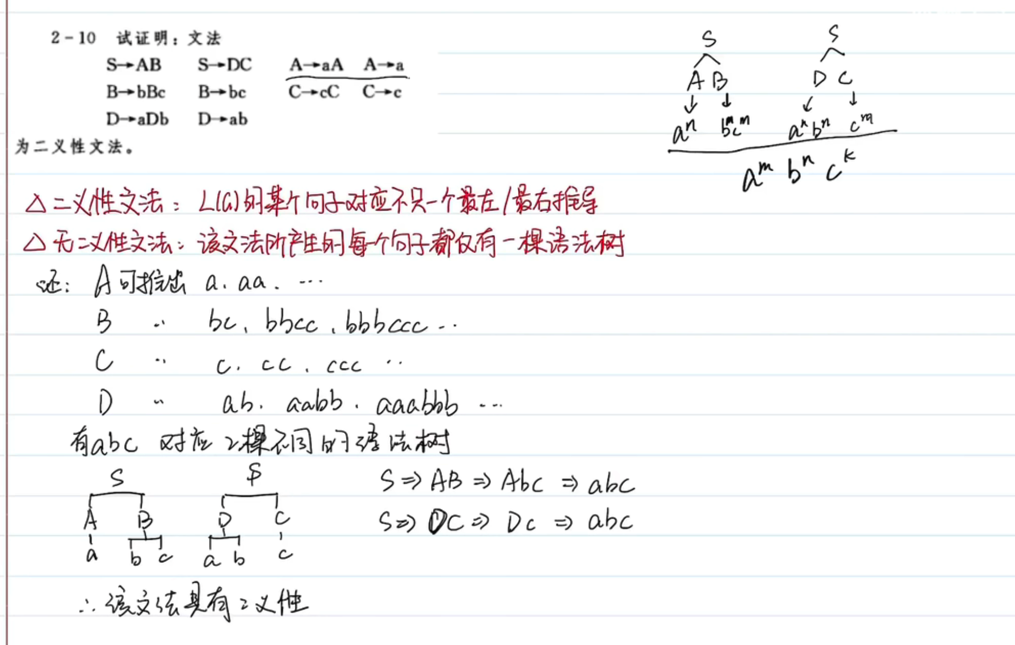 2-10 试证明：文法
S→AB S→DC A→aA A→a
B→bBc B→bc C→cC C→c
D→aDb D→ab
为二义性文法。
S S
A B D C
↓ ↓ ↓ ↓
aⁿ bᵐcᵐ aⁿbⁿ cᵐ
aᵐ bⁿ cᵏ
△ 二义性文法：L(G)的某个句子对应不只一个最左/最右推导
△ 无二义性文法：该文法所产生的每个句子都仅有一棵语法树
证：A可推出 a、aa、…
B 〃 bc、bbcc、bbbccc…
C 〃 c、cc、ccc …
D 〃 ab、aabb、aaabbb …
有abc 对应2棵不同的语法树
S S
A B D C
a b c a b c
S⇒AB⇒Abc⇒abc
S⇒DC⇒Dc⇒abc
∴该文法具有二义性